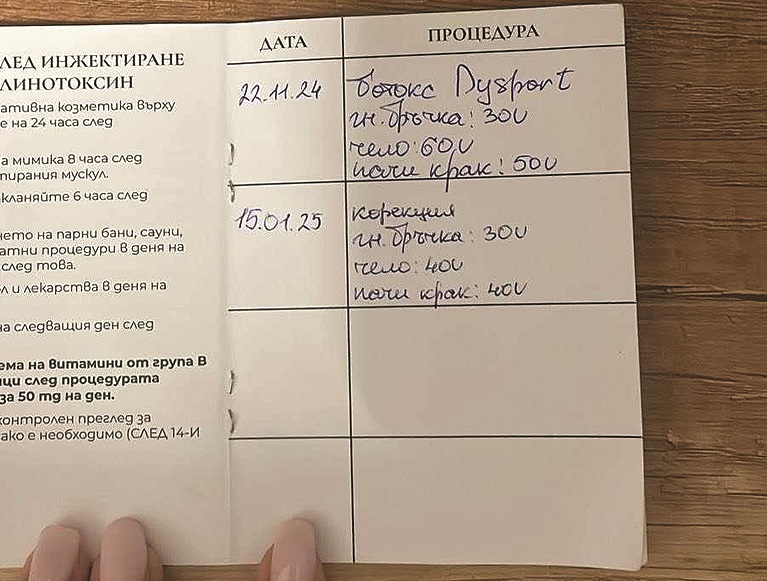 ЛЕД ИНЖЕКТИРАНЕ
ЛИНОТОКСИН
ативна козметика върху
е на 24 часа след
а мимика 8 часа след
тирания мускул.
кланяйте 6 часа след
нето на парни бани, сауни,
атни процедури в деня на
след това.
л и лекарства в деня на
на следващия ден след
ема на витамини от група В
ици след процедурата
за 50 mg на ден.
контролен преглед за
ако е необходимо (СЛЕД 14-И
ДАТА
ПРОЦЕДУРА
22.11.24
ботокс Dysport
гн. бръчка: 30U
чело: 60U
пачи крак: 50U
15.01.25
корекция
гн. бръчка: 30U
чело: 40U
пачи крак: 40U